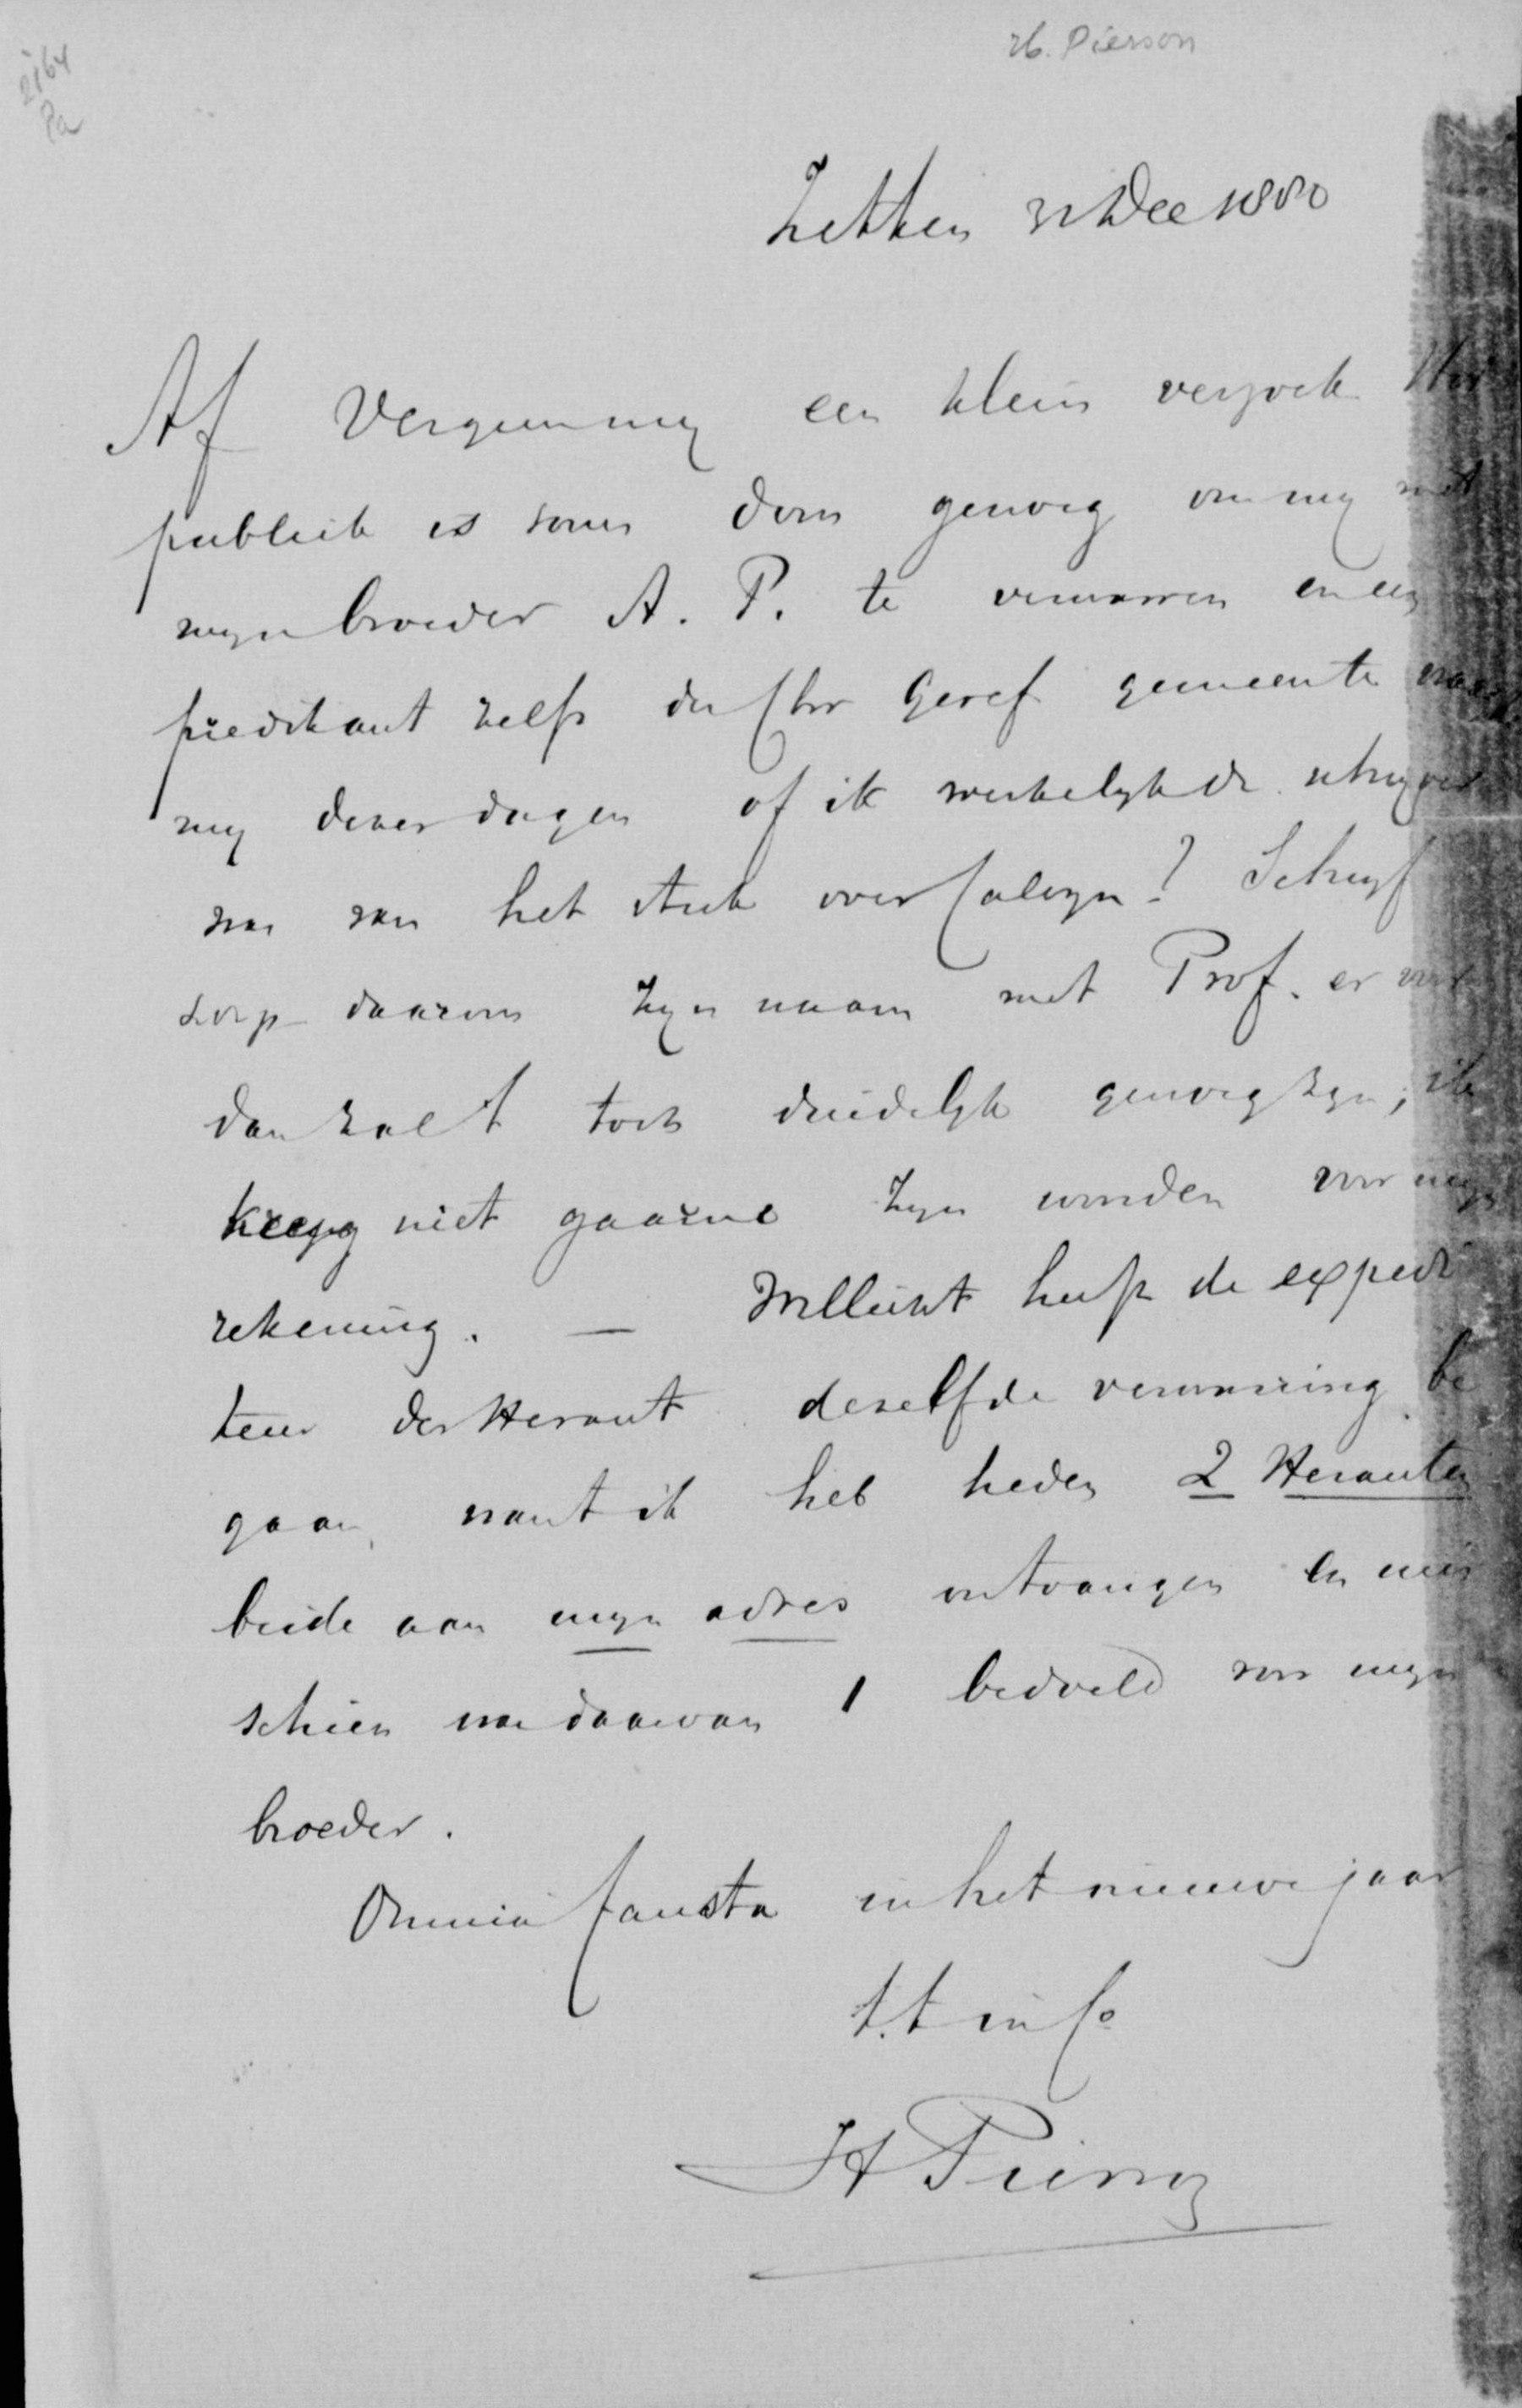 H. Pierson
2164
Pa
Zetten 31 Dec 1880
Af Vergun mij een klein verzoek Het
publiek is soms dom genoeg om mij met
mijn broeder A. P. te verwarren en een
predikant zelfs der Chr Geref gemeente vraagt
mij dezer dagen of ik werkelijk de schrijver
was van het stuk over Calvijn? Schrijf
svp daarom zijn naam met Prof. er voor
dan zal 't toch duidelijk genoeg zijn, ik
krijg niet gaarne zijn zonden voor mijn
rekening. — Wellicht heeft de expedi
teur der Heraut dezelfde verwarring be
gaan, want ik heb heden 2 Herauten
beide aan mijn adres ontvangen en mis
schien was daarvan 1 bedoeld voor mijn
broeder.
Omnia fausta in het nieuwe jaar
t.t in Co
H Pierson